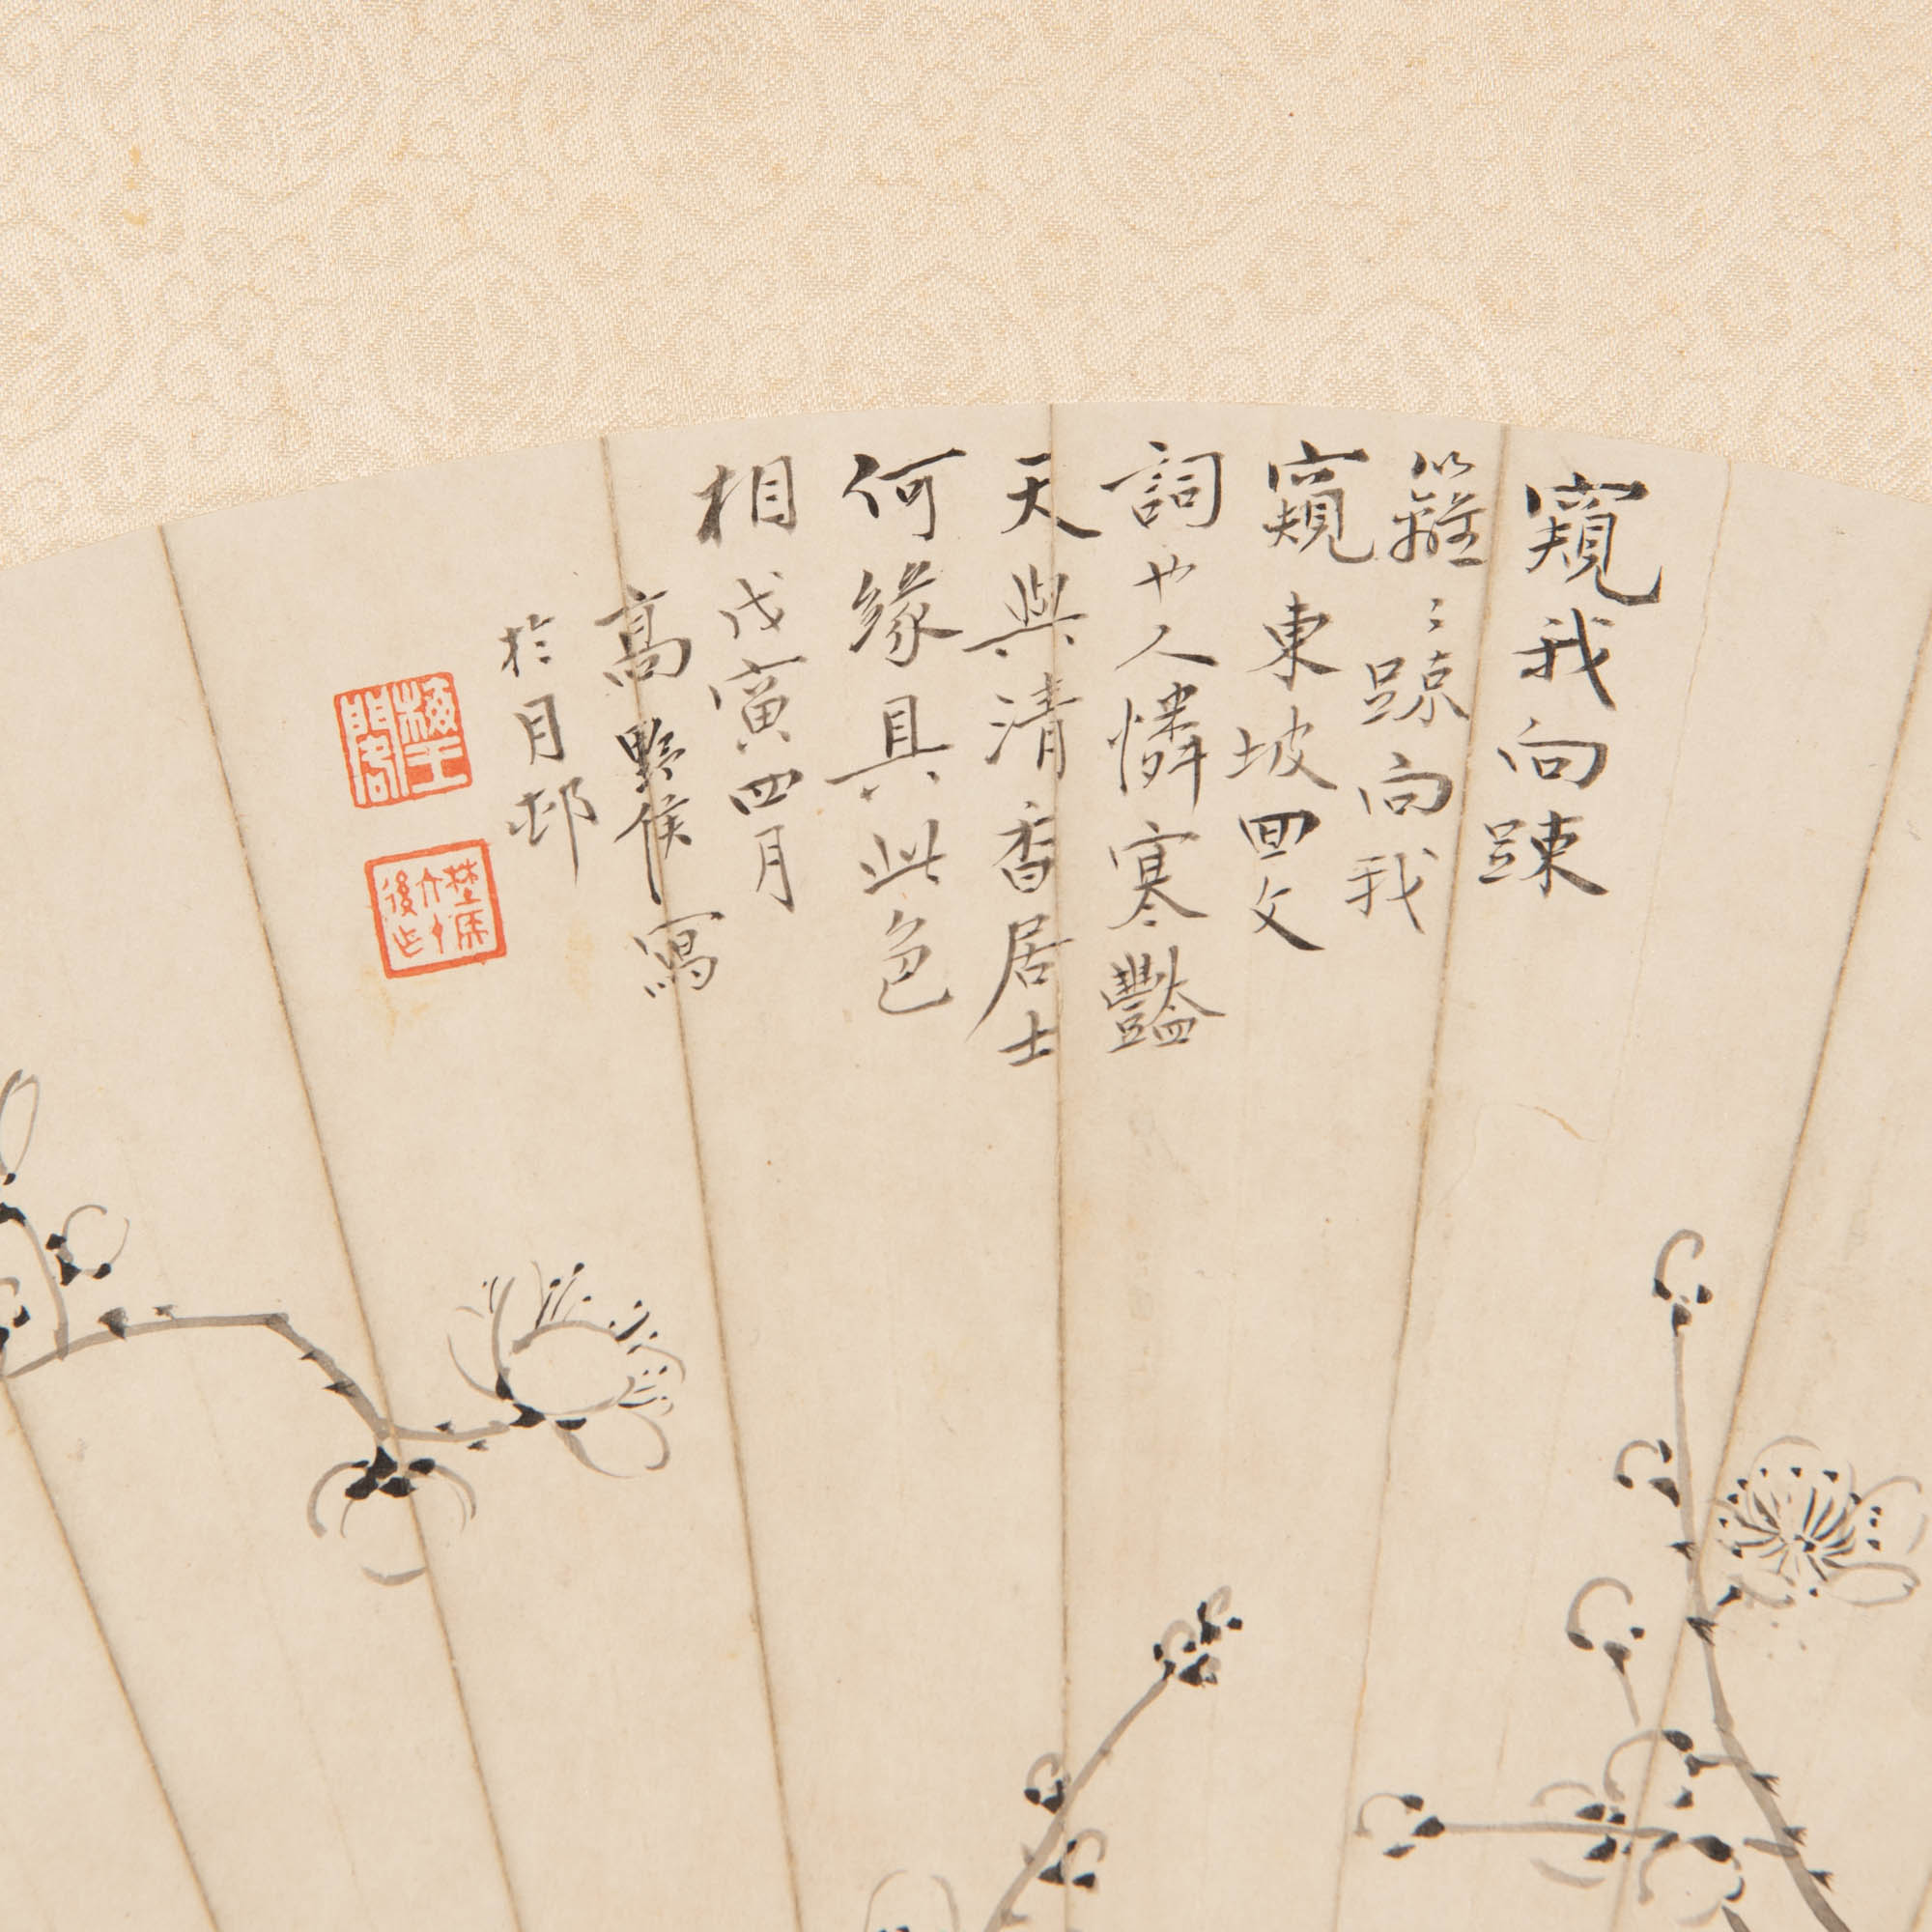 窺我向踈
籬〻踈向我
窺東坡回文
詞也人憐寒豔
天與清香居士
何緣具此色
相戊寅四月
高野侯寫
於月邨
梅王閣